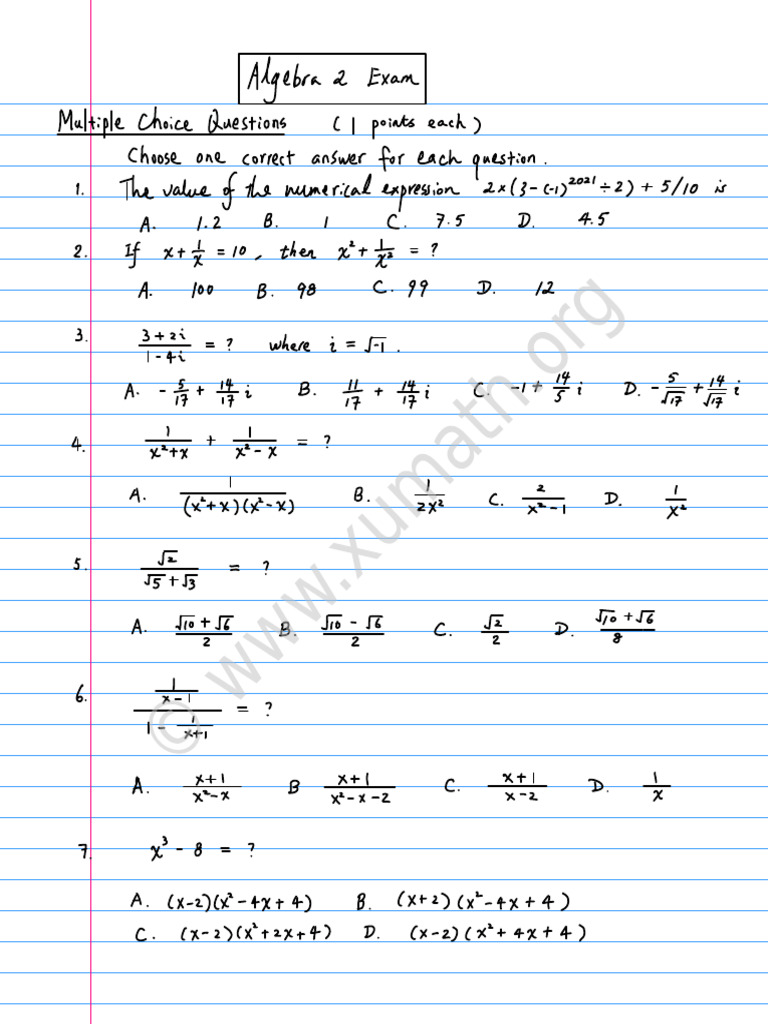 Algebra 2 Exam
Multiple Choice Questions (1 points each)
Choose one correct answer for each question.
1. The value of the numerical expression 2×(3-(-1)^2021÷2)+5/10 is
A. 1.2 B. 1 C. 7.5 D. 4.5
2. If x+1/x=10, then x²+1/x²=?
A. 100 B. 98 C. 99 D. 12
3. (3+2i)/(1-4i) = ? where i=√-1.
A. -5/17+14/17 i B. 11/17+14/17 i C. -1+14/5 i D. -5/√17+14/√17 i
4. 1/(x²+x) + 1/(x²-x) = ?
A. 1/((x²+x)(x²-x)) B. 1/(2x²) C. 2/(x²-1) D. 1/x²
5. √2/(√5+√3) = ?
A. (√10+√6)/2 B. (√10-√6)/2 C. √2/2 D. (√10+√6)/8
6. (1/(x-1))/(1-1/(x+1)) = ?
A. (x+1)/(x²-x) B (x+1)/(x²-x-2) C. (x+1)/(x-2) D. 1/x
7. x³-8 = ?
A. (x-2)(x²-4x+4) B. (x+2)(x²-4x+4)
C. (x-2)(x²+2x+4) D. (x-2)(x²+4x+4)
© www.xumath.org